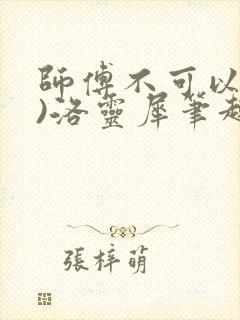 師傅不可以
)洛靈犀筆趣
張梓萌